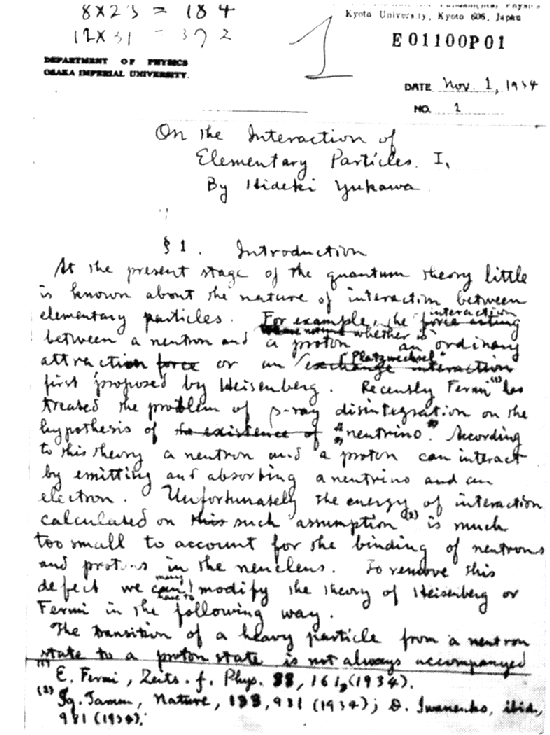 8 x 23 = 184
12 x 31 = 372
Kyoto University, Kyoto 606, Japan
E01100P01
DEPARTMENT OF PHYSICS
OSAKA IMPERIAL UNIVERSITY.
DATE Nov. 1, 1934
NO. 1
On the Interaction of
Elementary Particles. I.
By Hideki Yukawa
§ 1. Introduction
At the present stage of the quantum theory little
is known about the nature of interaction between
elementary particles. For example, the force acting
interaction
between a neutron and a proton whether is an ordinary
attraction force or an exchange interaction
"Platzwechsel"
first proposed by Heisenberg. Recently Fermi (1) has
treated the problem of β-ray disintegration on the
hypothesis of the existence of "neutrino". According
to this theory a neutron and a proton can interact
by emitting and absorbing a neutrino and an
electron. Unfortunately the energy of interaction
calculated on this such assumption (2) is much
too small to account for the binding of neutrons
and protons in the neucleus. To remove this
defect we can modify the theory of Heisenberg or
Fermi in the following way.
The transition of a heavy particle from a neutron
state to a proton state is not always accompanyed
(1) E. Fermi, Zeits. f. Phys. 88, 161, (1934).
(2) Ig. Tamm, Nature, 133, 981 (1934); D. Iwanenko, ibid,
981 (1934).